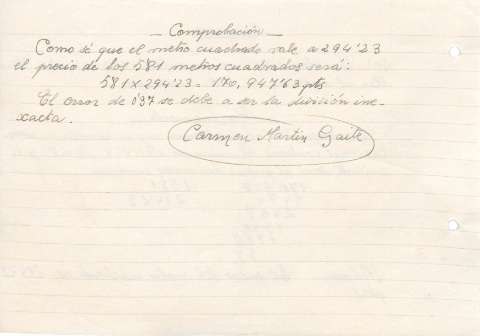 - Comprobación -
Como sé que el metro cuadrado vale a 294'23
el precio de los 581 metros cuadrados será:
581 x 294'23 = 170,947'63 pts
El error de 0'37 se debe a ser la división ine-
xacta.
Carmen Martín Gaite